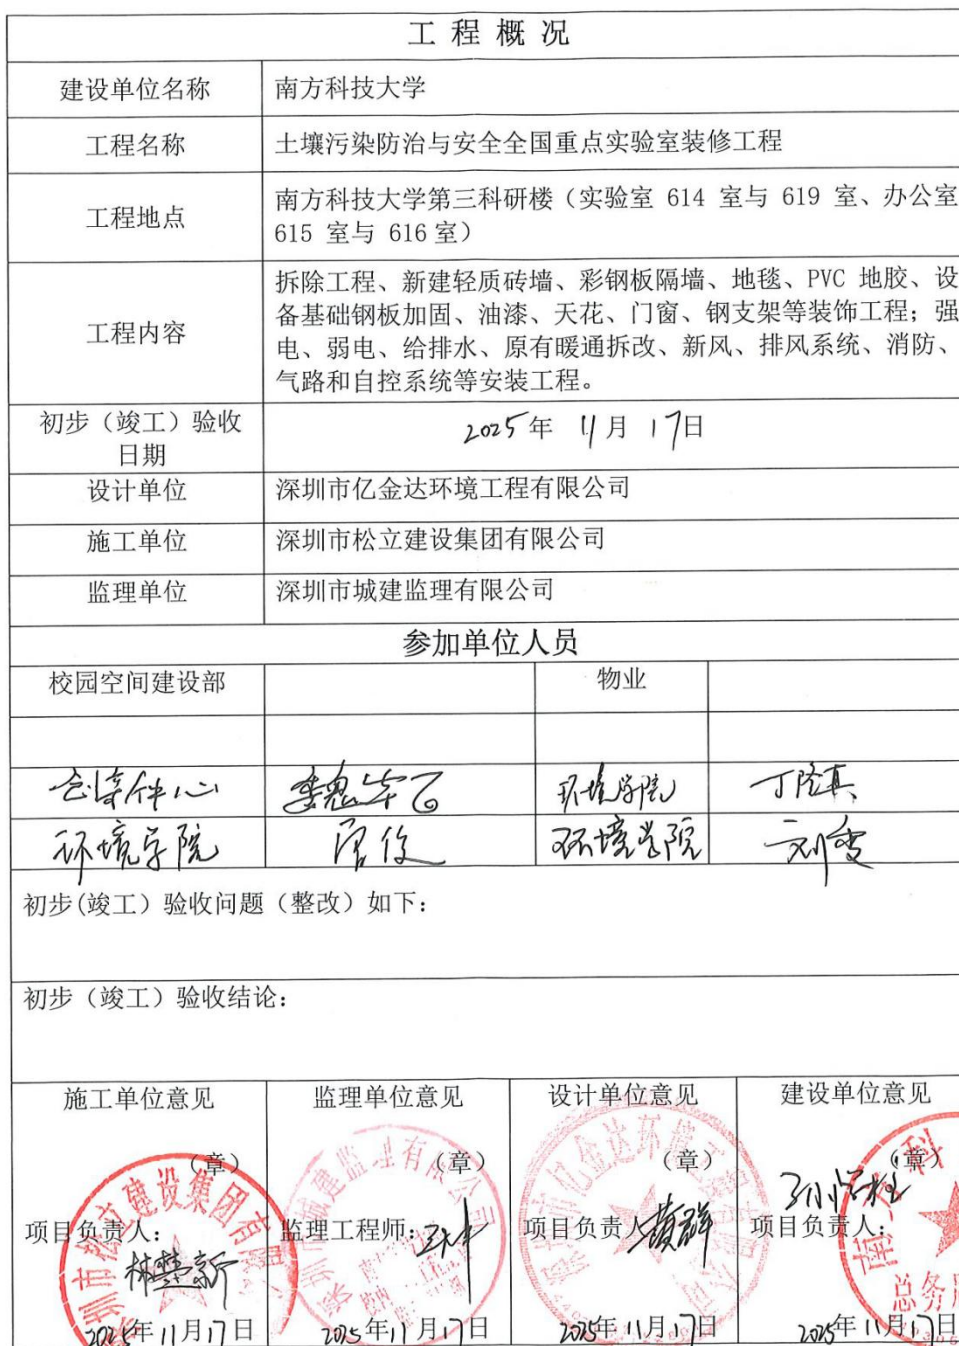 工程概况
建设单位名称
南方科技大学
工程名称
土壤污染防治与安全全国重点实验室装修工程
工程地点
南方科技大学第三科研楼（实验室 614 室与 619 室、办公室
615 室与 616 室）
工程内容
拆除工程、新建轻质砖墙、彩钢板隔墙、地毯、PVC 地胶、设
备基础钢板加固、油漆、天花、门窗、钢支架等装饰工程；强
电、弱电、给排水、原有暖通拆改、新风、排风系统、消防、
气路和自控系统等安装工程。
初步（竣工）验收
日期
2025年 11月 17日
设计单位
深圳市亿金达环境工程有限公司
施工单位
深圳市松立建设集团有限公司
监理单位
深圳市城建监理有限公司
参加单位人员
校园空间建设部
物业
环境学院
丁隆真
环境学院
环境学院
初步(竣工）验收问题（整改）如下：
初步（竣工）验收结论：
施工单位意见
监理单位意见
设计单位意见
建设单位意见
（章）
（章）
（章）
（章）
项目负责人：
监理工程师：
项目负责人
黄群
项目负责人：
2025年11月17日
2025年11月17日
2025年11月17日
2025年11月17日
总务